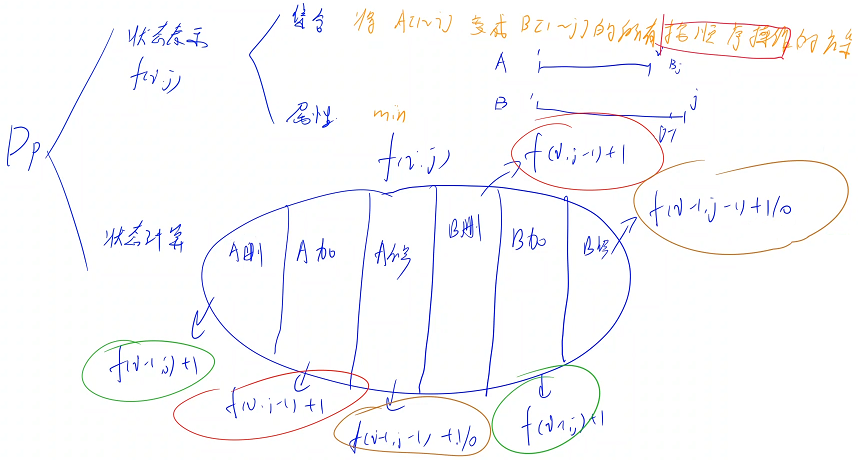 集合 将 A[1~i] 变成 B[1~j] 的所有按顺序操作的方案
状态表示
f(i,j)
A i Bj
B j
属性 min
Dp
f(i,j)
f(i,j-1)+1
f(i-1,j-1)+1/0
状态计算
A删 A加 A修 B删 B加 B修
f(i-1,j)+1
f(i,j-1)+1
f(i-1,j-1)+1/0
f(i-1,j)+1